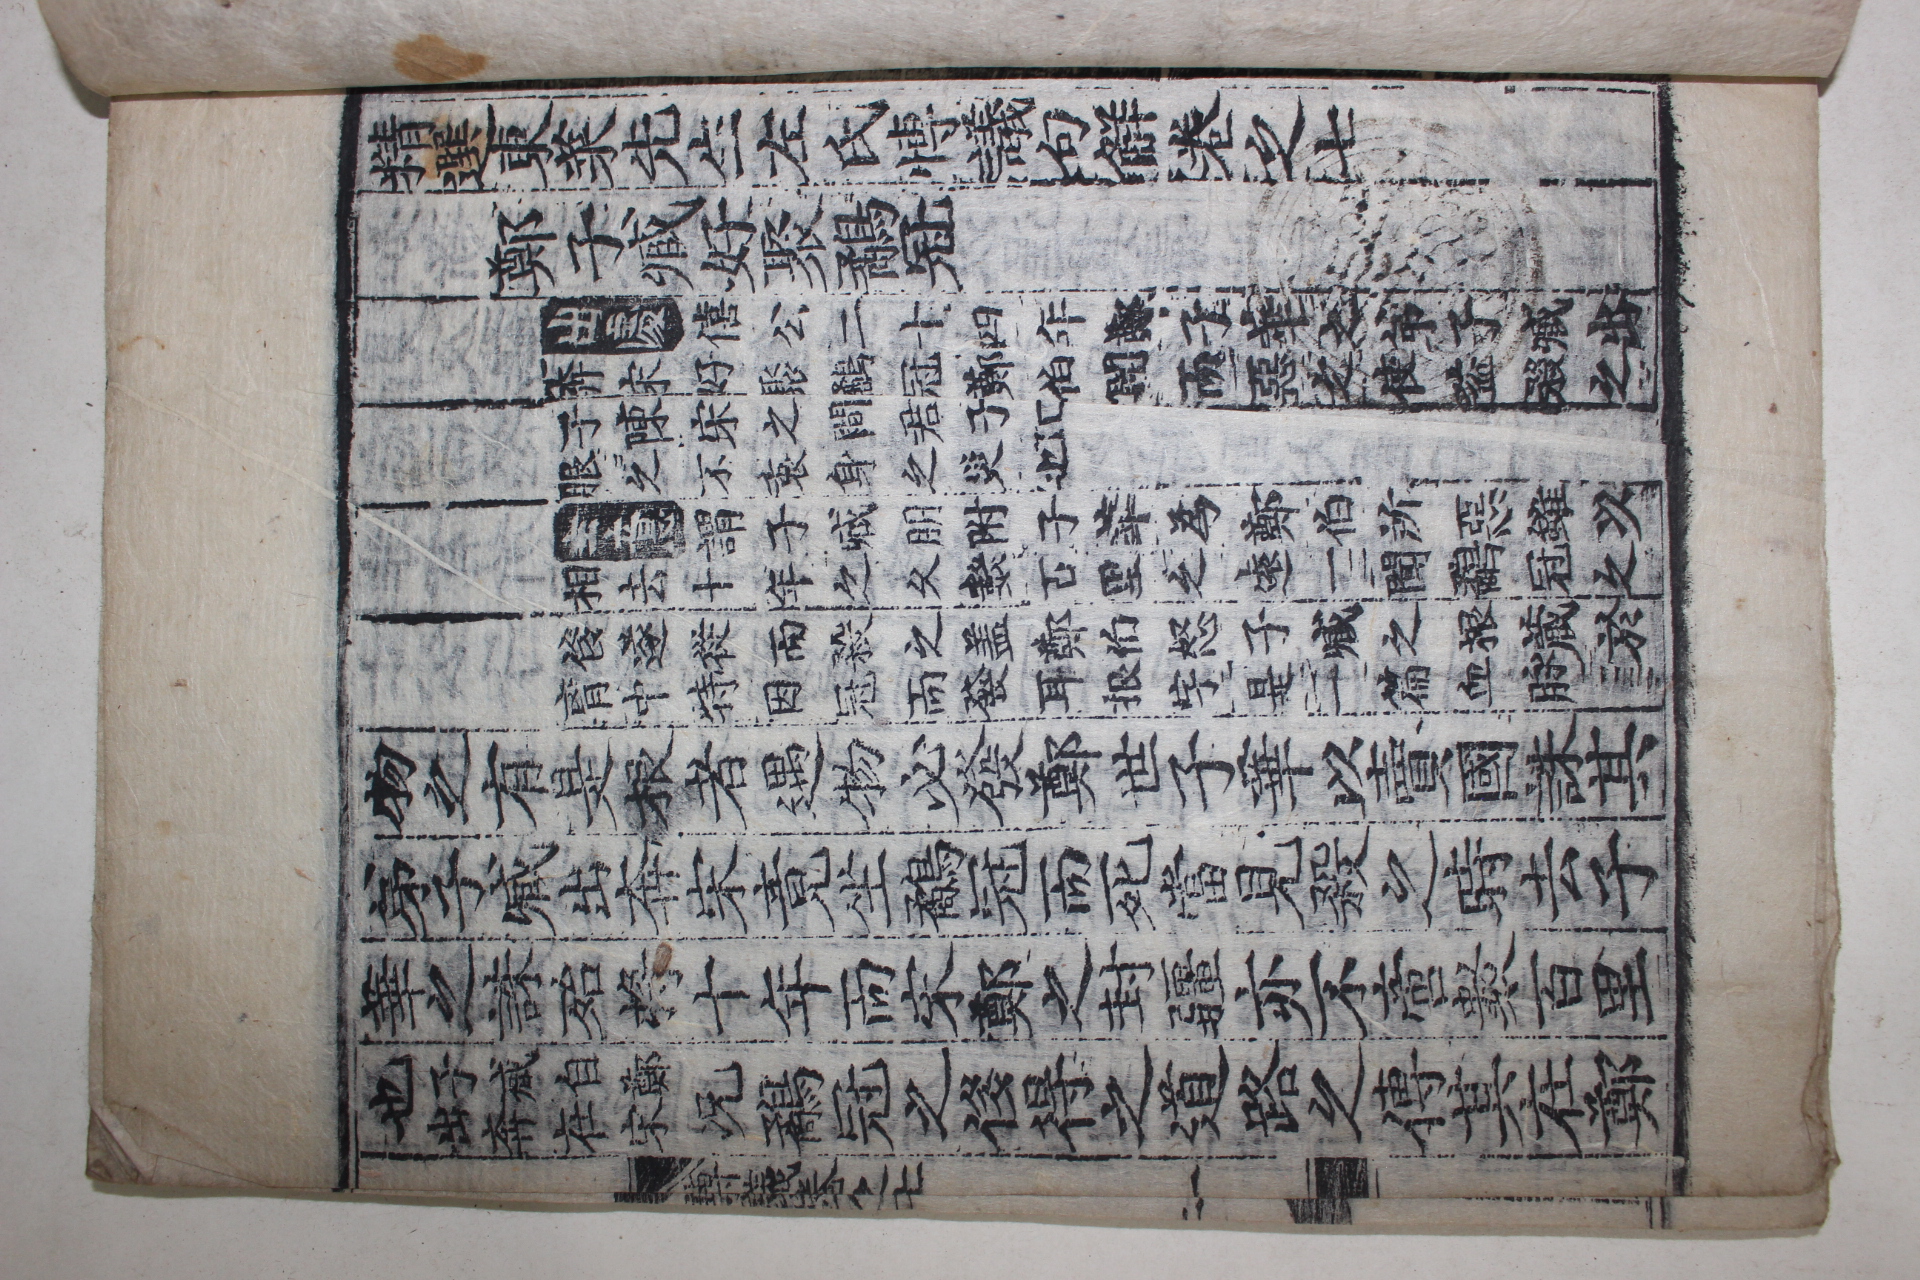 精選東萊先生左氏博議句解卷之七
鄭子臧好聚鷸冠
出處僖公二十四年鄭子華之弟子臧出
奔宋好聚鷸冠鄭伯聞而惡之使盜殺之
子陳宋之間君子
服之不衷身之災也
謂子臧朋附子華為鄭伯所惡雖以
相去十年之久數百里之遠一聞鷸冠之
後遂從而殺之盖鄭伯怒子臧之根藏於
胷中特因冠而發耳根字是一篇血脉
物之有是根者遇物必發鄭世子華以賣國誅其
弟子臧出奔宋竟坐鷸冠而死當見殺之時去子
華之誅殆將十年而宋鄭之封疆亦不啻數百里
也子臧自鄭
出奔在宋
况鷸冠之後得之道路之傳其在鄭
博議卷之七
一